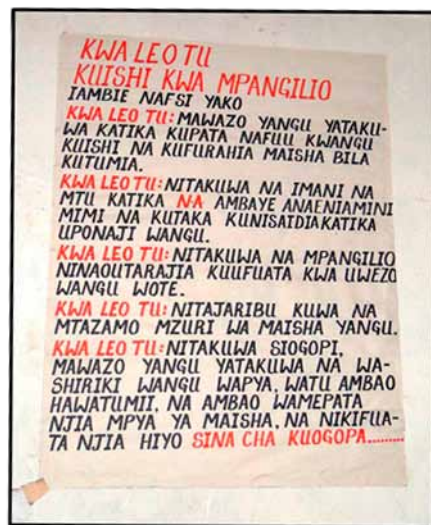 KWA LEO TU
KUISHI KWA MPANGILIO
IAMBIE NAFSI YAKO
KWA LEO TU: MAWAZO YANGU YATAKU-
WA KATIKA KUPATA NAFUU KWANGU
KUISHI NA KUFURAHIA MAISHA BILA
KUTUMIA.
KWA LEO TU: NITAKUWA NA IMANI NA
MTU KATIKA N.A AMBAYE ANAENIAMINI
MIMI NA KUTAKA KUNISAIDIA KATIKA
UPONAJI WANGU.
KWA LEO TU: NITAKUWA NA MPANGILIO
NINAOUTARAJIA KUUFUATA KWA UWEZO
WANGU WOTE.
KWA LEO TU: NITAJARIBU KUWA NA
MTAZAMO MZURI WA MAISHA YANGU.
KWA LEO TU: NITAKUWA SIOGOPI,
MAWAZO YANGU YATAKUWA NA WA-
SHIRIKI WANGU WAPYA, WATU AMBAO
HAWATUMII, NA AMBAO WAMEPATA
NJIA MPYA YA MAISHA, NA NIKIFUA-
TA NJIA HIYO SINA CHA KUOGOPA..........